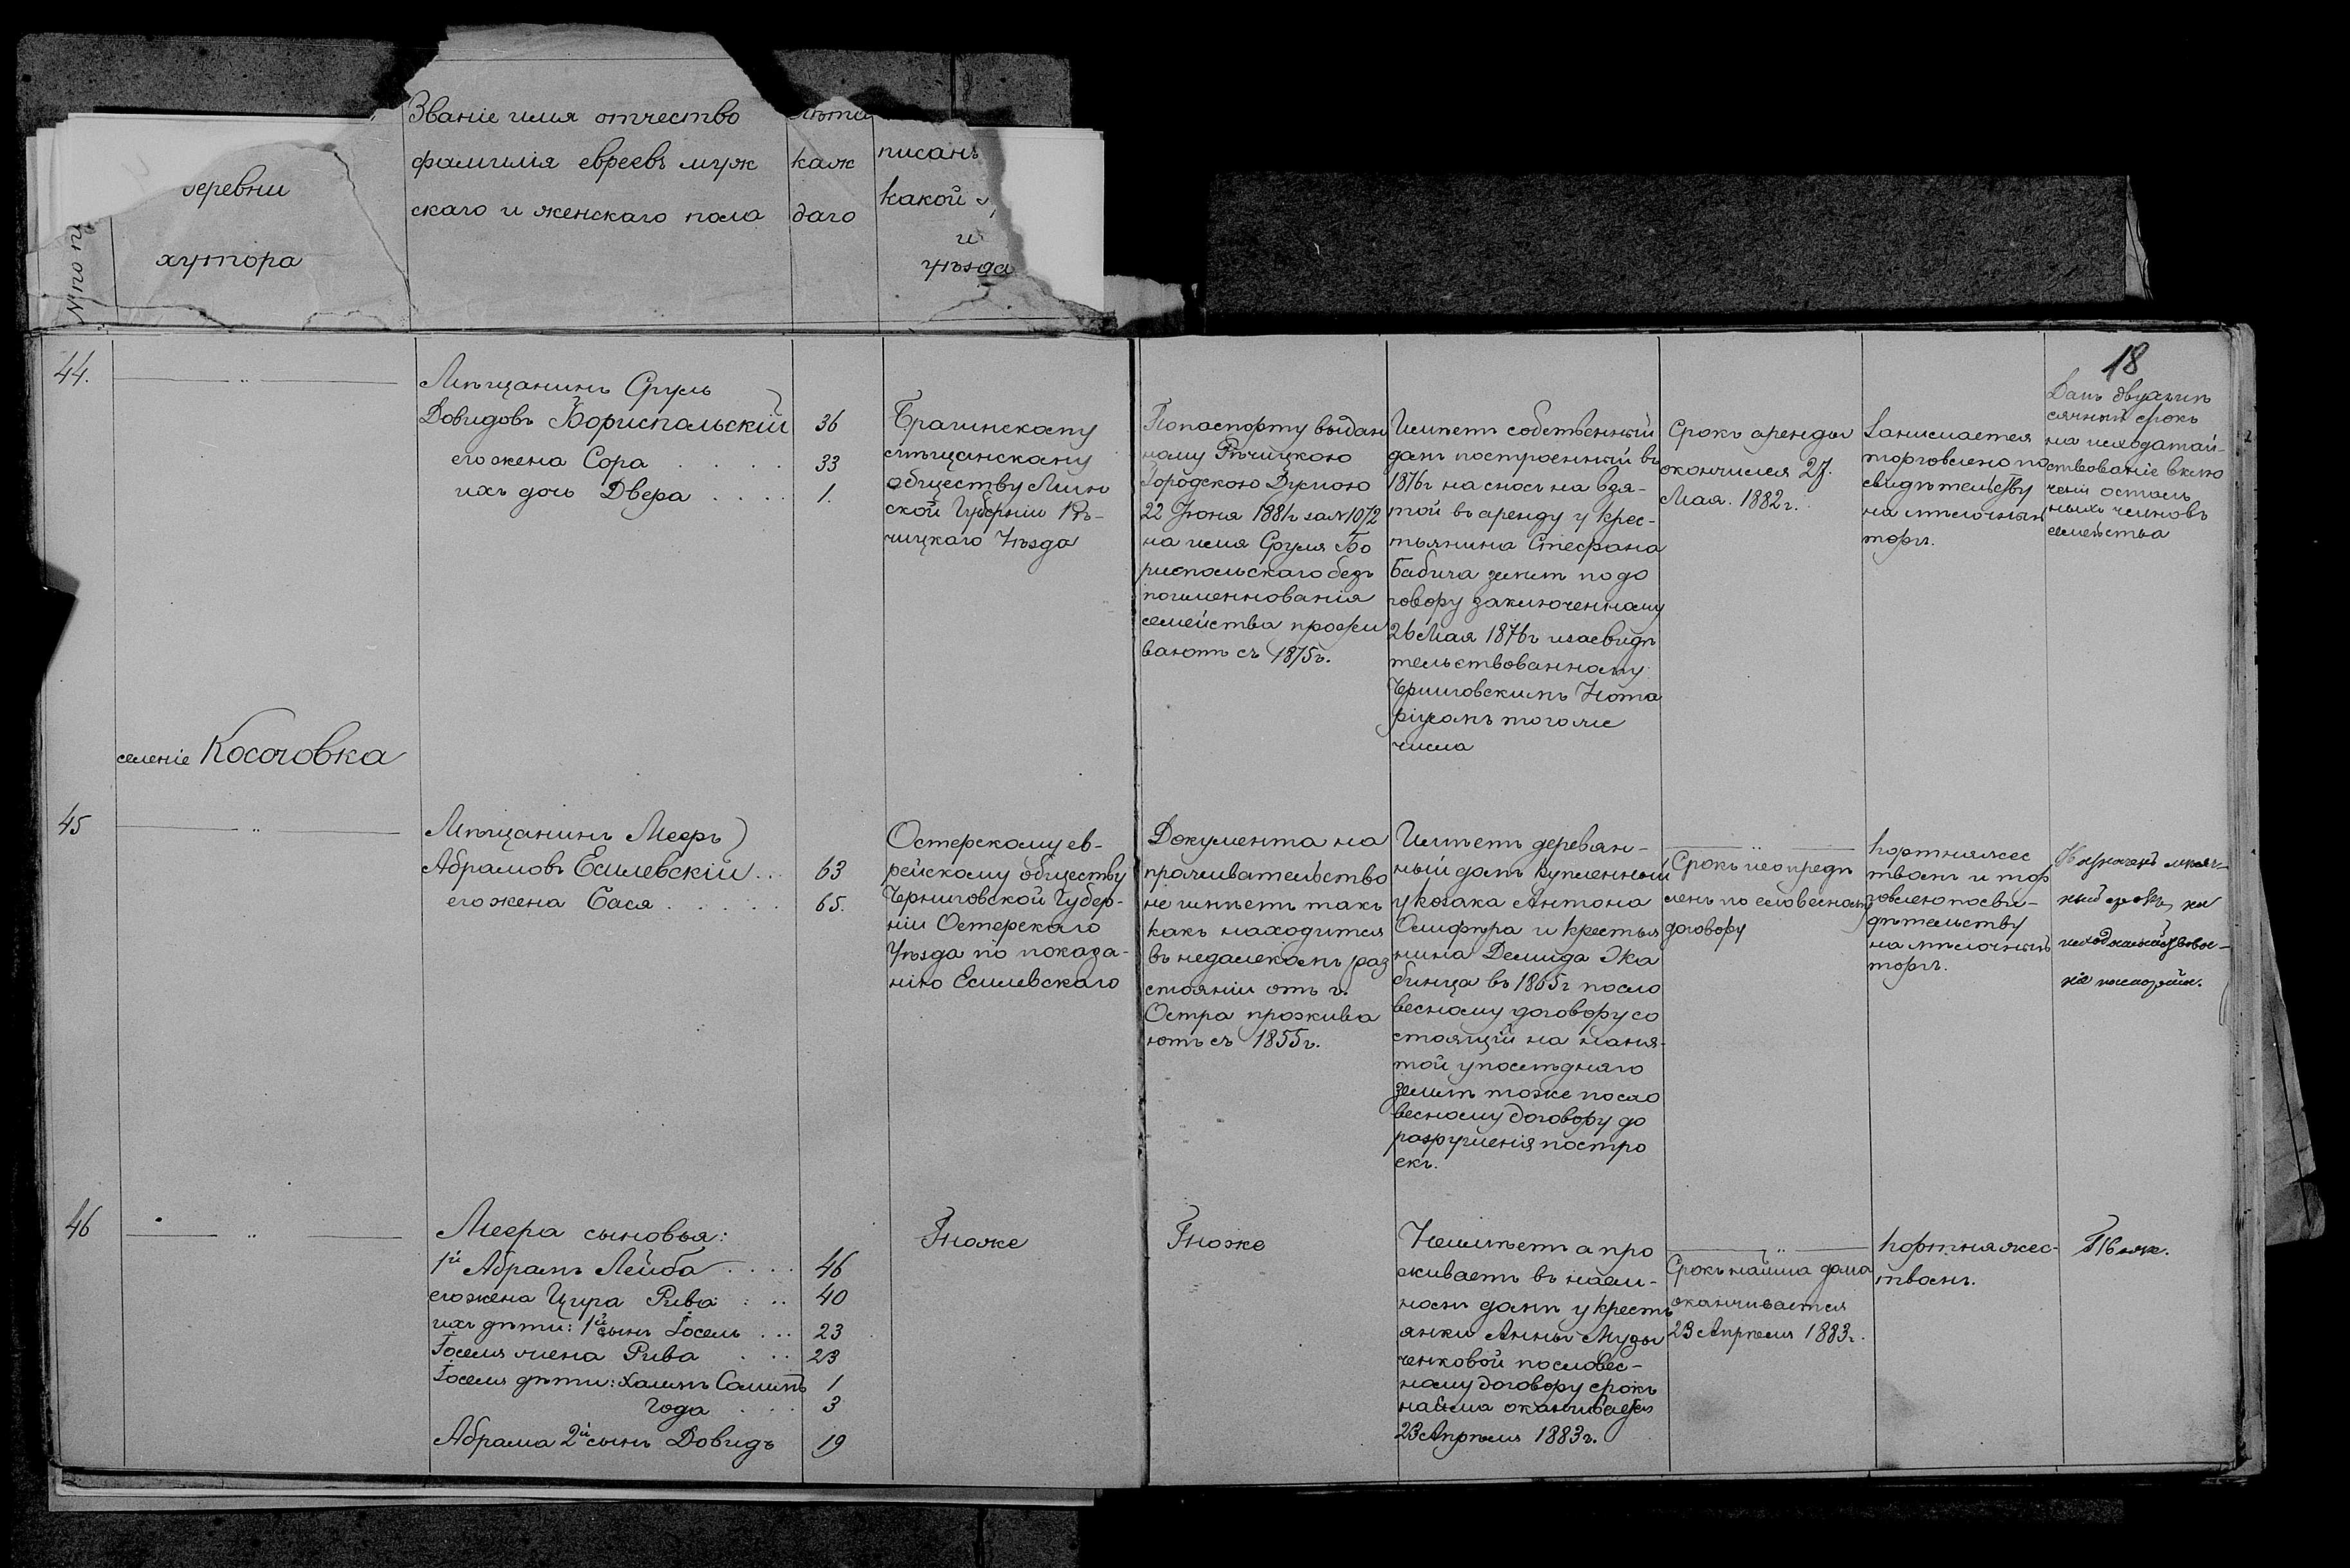 Званіе имя отчество
фамилія евреевъ муж
скаго и женскаго пола
лѣта
каж
даго
писанъ
какой
и
уѣзда
деревни
хутора
№ по
18
44.
Мѣщанинъ Сруль
Довидовъ Бориспольскій 36
его жена Сора . . . . 33
ихъ дочь Двера . . . . 1.
Брагинскому
мѣщанскому
обществу Мин
ской Губерніи Рѣ-
чицкаго Уѣзда
По паспорту выдан
ному Рѣчицкою
Городскою Думою
22 Іюня 1881г за №1072
на имя Сруля Бо
риспольскаго безъ
поименнованія
семейства прожи
ваютъ съ 1875г.
Имѣетъ собственный
домъ построенный въ
1876г на сносъ на взя-
той въ аренду у крес-
тьянина Стефана
Бабича землѣ по до
говору заключенному
26 Мая 1876г и засвидѣ
тельствованному
Черниговскимъ Нота
ріусомъ того же
числа
Срокъ аренды
окончился 27.
Мая. 1882г.
Занимается
торговлею по
свидѣтельству
на мѣлочный
торгъ.
Данъ двухмѣ
сячный срокъ
на исходатай-
ствованіе вклю
ченія осталь
ныхъ членовъ
семейства
селеніе Косачовка
45
Мѣщанинъ Мееръ
Абрамовъ Есилевскій . . 63
его жена Бася . . . . . 65.
Остерскому ев-
рейскому обществу
Черниговской Губер-
ніи Остерскаго
Уѣзда по показа-
нію Есилевскаго
Документа на
прожывательство
не имѣетъ такъ
какъ находится
въ недалекомъ раз
стояніи отъ г.
Остра прожива
ютъ съ 1855г.
Имѣетъ деревян-
ный домъ купленный
у козака Антона
и крестья
нина Демида
въ 1865г по сло
весному договору со
стоящій на наня-
той у послѣдняго
землѣ тоже по сло
весному договору до
разрушенія постро
екъ.
Срокъ неопредѣ
ленъ по словесному
договору
портняжес
твомъ и тор
говлею по сви-
дѣтельству
на мѣлочный
торгъ.
Назначенъ мѣсяч-
ный срокъ на
исходатайствова-
ніе паспорта.
46
Меера сыновья:
1й Абрамъ Лейба . . . . 46
его жена Цира Рива . . . 40
ихъ дѣти: 1й сынъ Іосель . . . 23
Іоселя жена Рива . . . 23
Іоселя дѣти: Хаимъ 1
Года . . . . 3
Абрама 2й сынъ Довидъ 19
Тоже
Тоже
Неимѣетъ а про
живаетъ въ наем-
номъ домѣ у кресть
янки Анны Музы
ченковой по словес-
ному договору срокъ
найма оканчивается
23 Апрѣля 1883г.
Срокъ найма дома
оканчивается
23 Апрѣля 1883г.
портняжес-
твомъ.
Тоже.